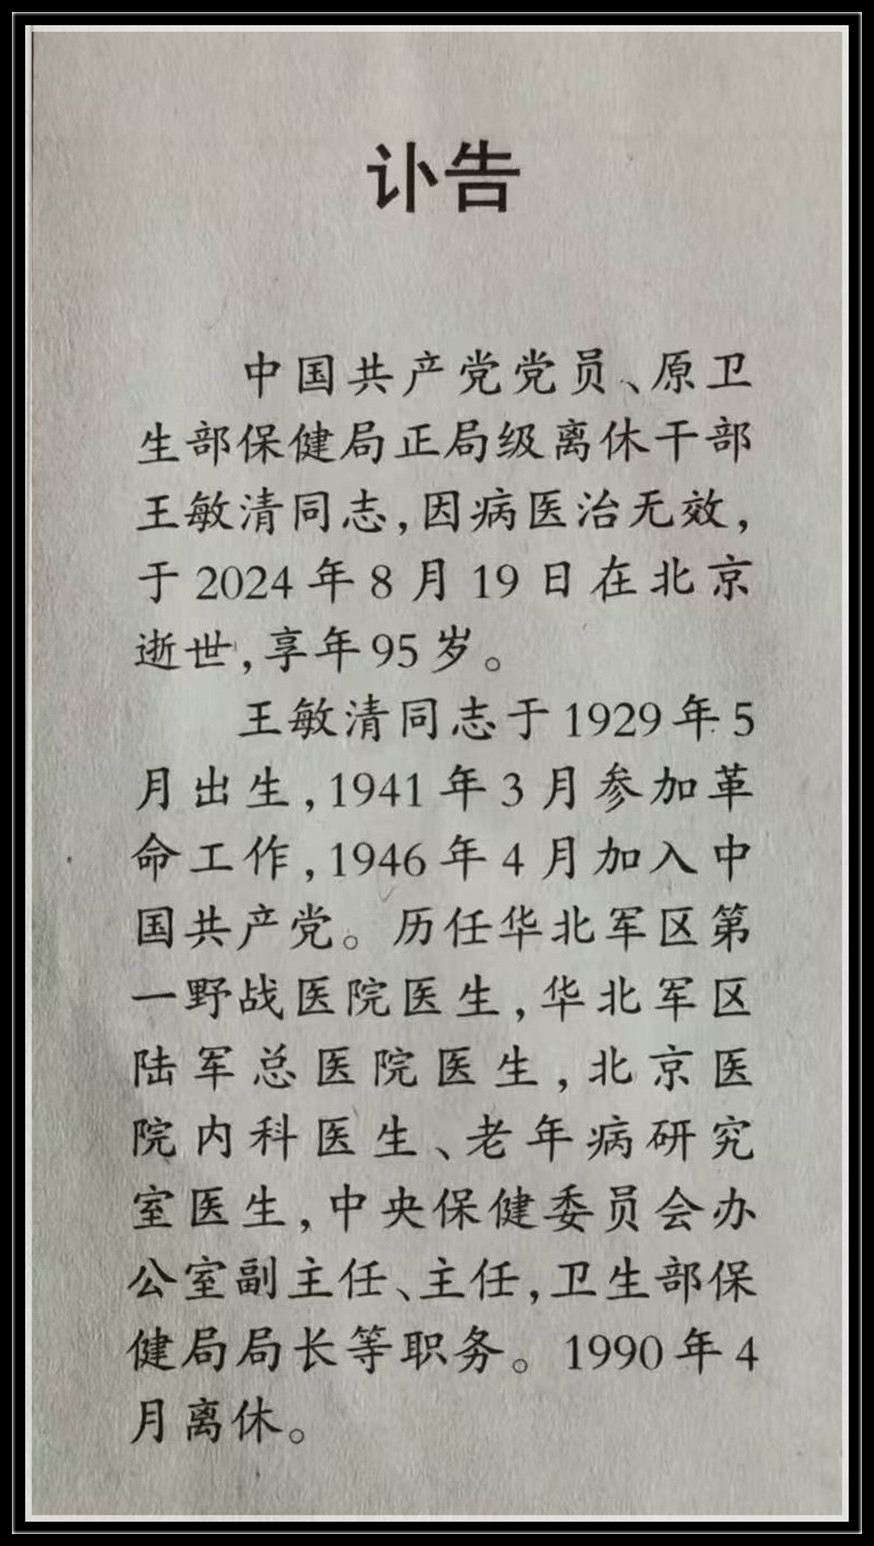 讣告
中国共产党党员、原卫
生部保健局正局级离休干部
王敏清同志,因病医治无效,
于2024年8月19日在北京
逝世,享年95岁。
王敏清同志于1929年5
月出生,1941年3月参加革
命工作,1946年4月加入中
国共产党。历任华北军区第
一野战医院医生,华北军区
陆军总医院医生,北京医
院内科医生、老年病研究
室医生,中央保健委员会办
公室副主任、主任,卫生部保
健局局长等职务。1990年4
月离休。